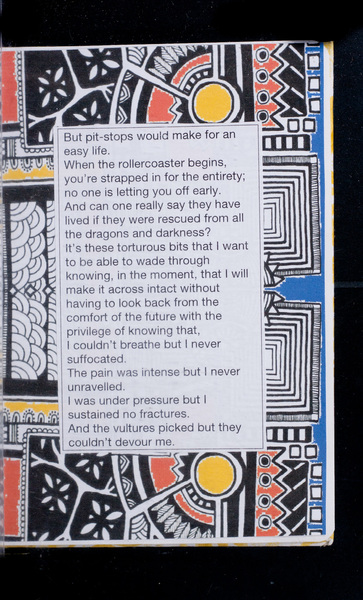 But pit-stops would make for an
easy life.
When the rollercoaster begins,
you're strapped in for the entirety;
no one is letting you off early.
And can one really say they have
lived if they were rescued from all
the dragons and darkness?
It's these torturous bits that I want
to be able to wade through
knowing, in the moment, that I will
make it across intact without
having to look back from the
comfort of the future with the
privilege of knowing that,
I couldn't breathe but I never
suffocated.
The pain was intense but I never
unravelled.
I was under pressure but I
sustained no fractures.
And the vultures picked but they
couldn't devour me.